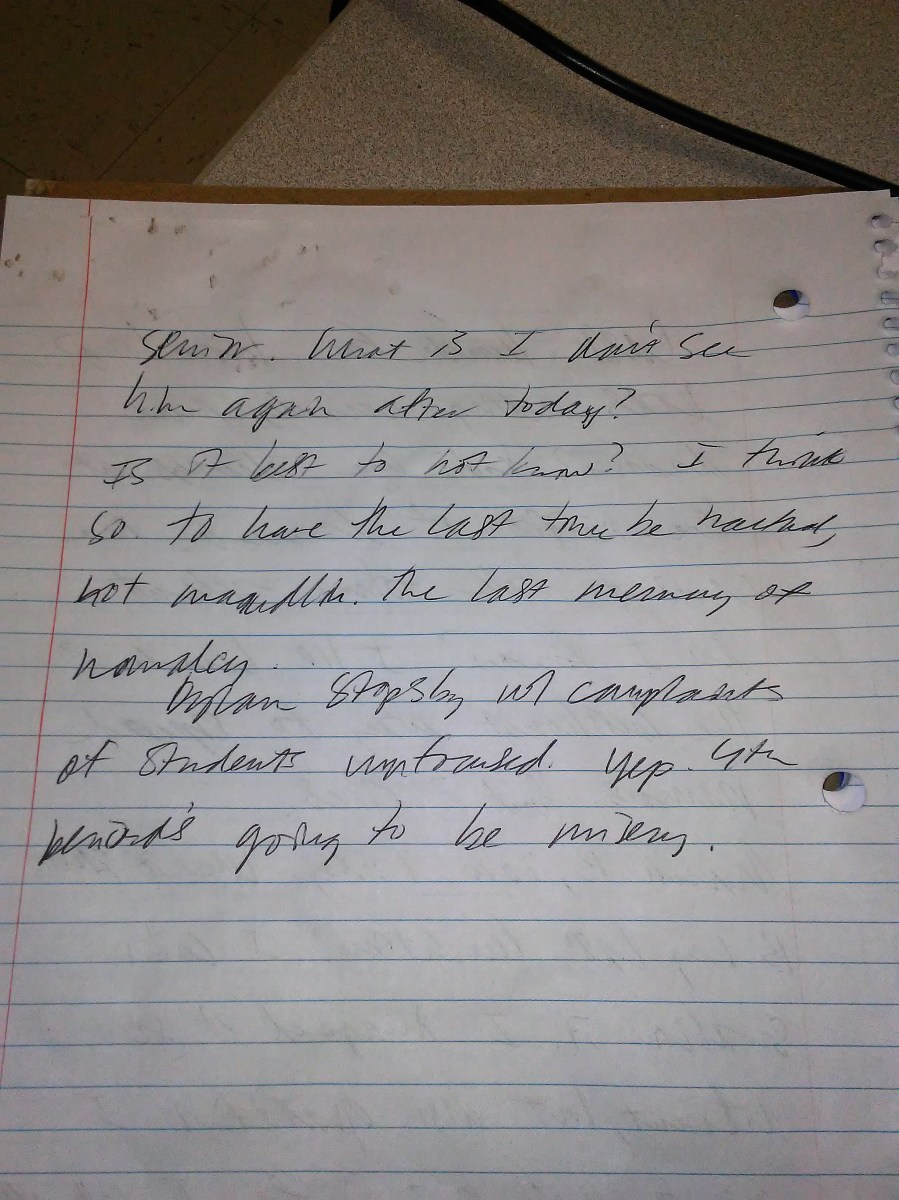 senior. What is I don't see
him again after today?
Is it best to not know? I think
so. To have the last time be
not maudlin. The last memory of
normalcy.
Dylan stops by w/ complaints
of students unfocused. Yep. 4th
period's going to be misery.